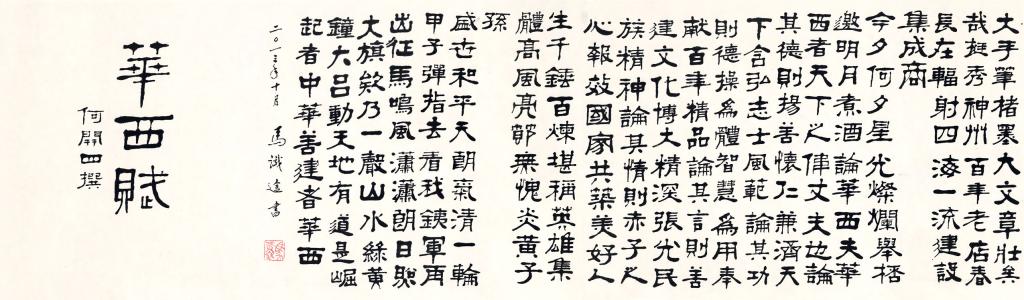 大手筆楮墨大文章壯矣
哉挺秀神州百年老店春
長在輻射四海一流建設
集成商
今夕何夕星光燦爛舉桮
邀明月煮酒論華西夫華
西者天下之偉丈夫也論
其德則揚善懷仁兼濟天
下含弘志士風範論其功
則德操為體智慧為用奉
献百年精品論其言則善
建文化博大精深張允民
族精神論其情則赤子之
心報效國家共築美好人
生千錘百煉堪稱英雄集
體高風亮節無愧炎黃子
孫
盛世和平天朗氣清一輪
甲子彈指去看我鐵軍再
出征馬鳴風瀟瀟朗日照
大旗欸乃一聲山水綠黃
鐘大吕動天地有道是崛
起者中華善建者華西
二〇一三年十月 馬識途書
華西賦
何開四撰